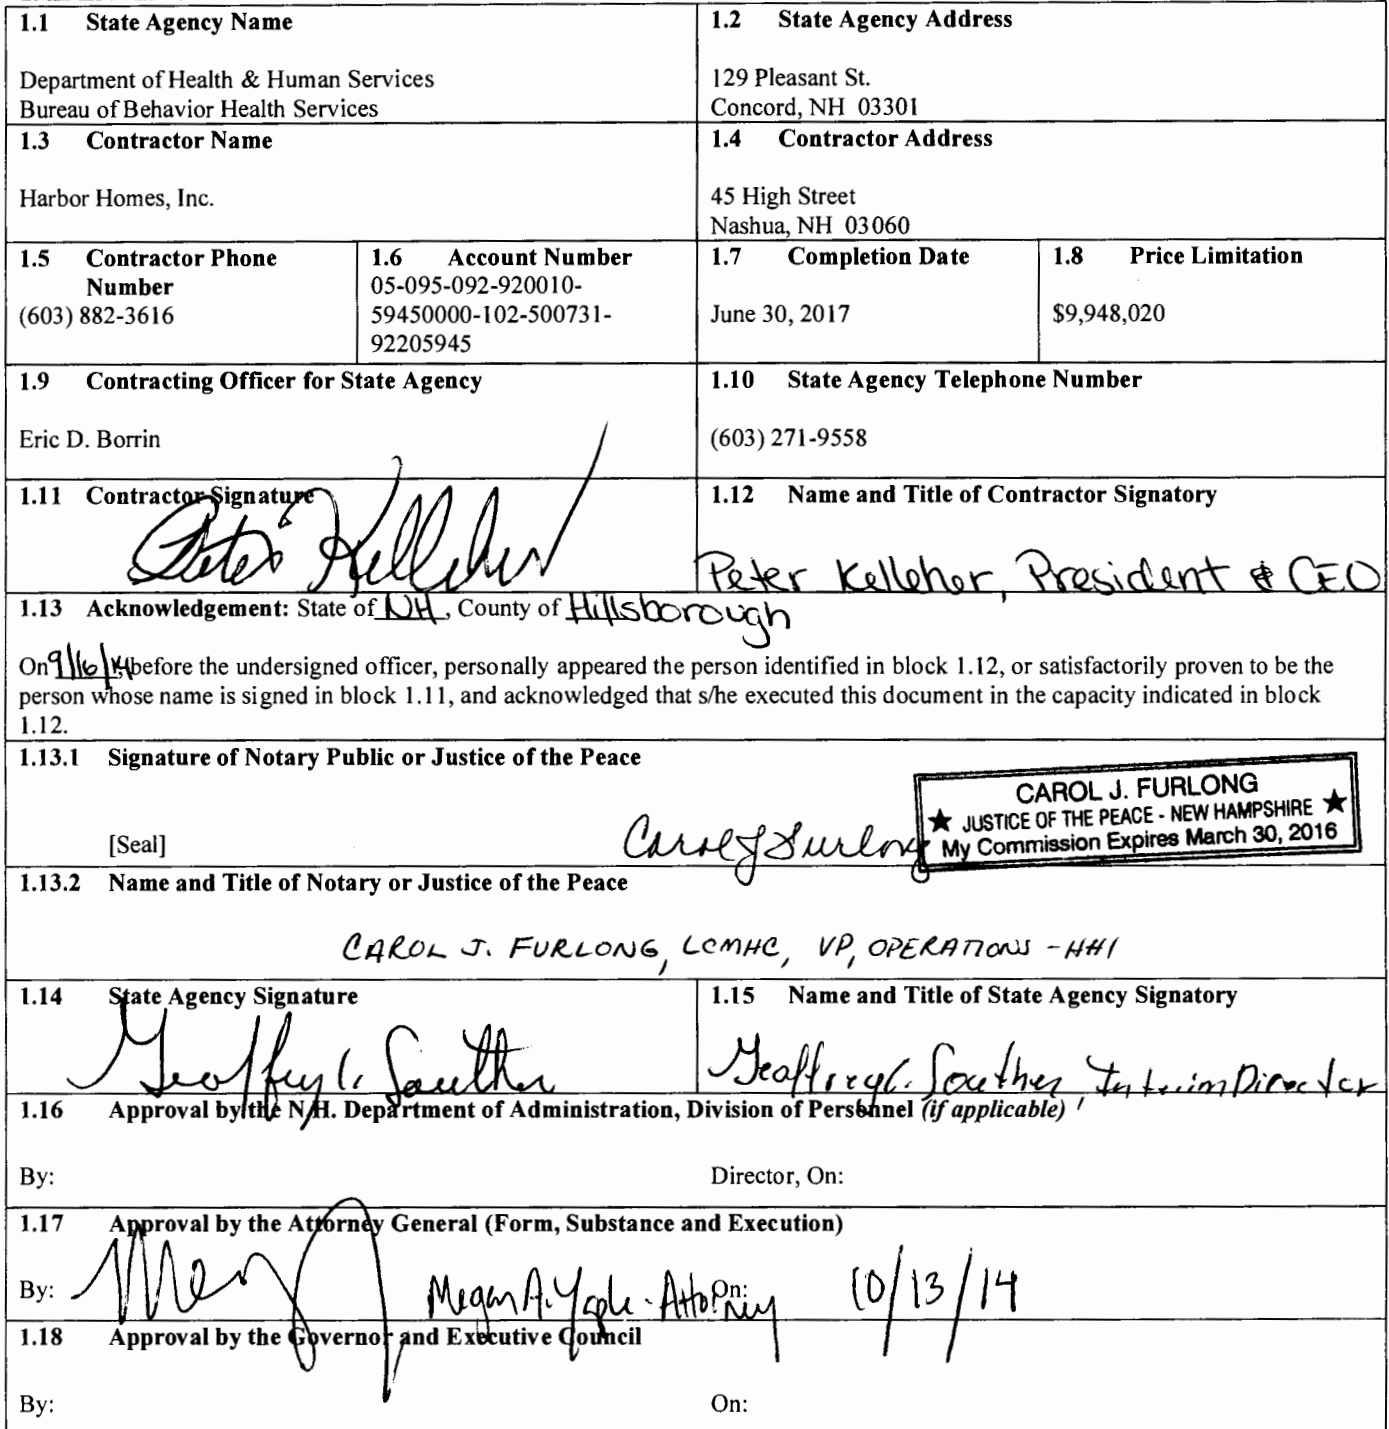 1.1 State Agency Name
Department of Health & Human Services
Bureau of Behavior Health Services
1.2 State Agency Address
129 Pleasant St.
Concord, NH 03301
1.3 Contractor Name
Harbor Homes, Inc.
1.4 Contractor Address
45 High Street
Nashua, NH 03060
1.5 Contractor Phone
Number
(603) 882-3616
1.6 Account Number
05-095-092-920010-
59450000-102-500731-
92205945
1.7 Completion Date
June 30, 2017
1.8 Price Limitation
$9,948,020
1.9 Contracting Officer for State Agency
Eric D. Borrin
1.10 State Agency Telephone Number
(603) 271-9558
1.11 Contractor Signature
Peter Kelleher
1.12 Name and Title of Contractor Signatory
Peter Kelleher, President & CEO
1.13 Acknowledgement: State of NH, County of Hillsborough
On 9/16/14, before the undersigned officer, personally appeared the person identified in block 1.12, or satisfactorily proven to be the
person whose name is signed in block 1.11, and acknowledged that s/he executed this document in the capacity indicated in block
1.12.
1.13.1 Signature of Notary Public or Justice of the Peace
[Seal]
Carol J Furlong
CAROL J. FURLONG
★ JUSTICE OF THE PEACE - NEW HAMPSHIRE ★
My Commission Expires March 30, 2016
1.13.2 Name and Title of Notary or Justice of the Peace
CAROL J. FURLONG, LCMHC, VP, OPERATIONS - HHI
1.14 State Agency Signature
Geoffrey C. Souther
1.15 Name and Title of State Agency Signatory
Geoffrey C. Souther Interim Director
1.16 Approval by the N.H. Department of Administration, Division of Personnel (if applicable)
By:
Director, On:
1.17 Approval by the Attorney General (Form, Substance and Execution)
By:
Megan A. Yaple - Attorney
On: 10/13/14
1.18 Approval by the Governor and Executive Council
By:
On: